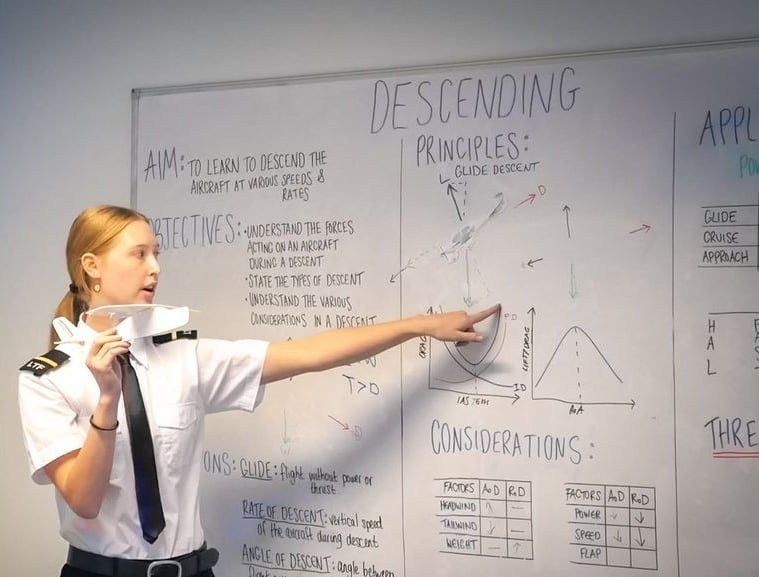 DESCENDING
AIM: TO LEARN TO DESCEND THE
AIRCRAFT AT VARIOUS SPEEDS &
RATES
OBJECTIVES: • UNDERSTAND THE FORCES
ACTING ON AN AIRCRAFT
DURING A DESCENT
• STATE THE TYPES OF DESCENT
• UNDERSTAND THE VARIOUS
CONSIDERATIONS IN A DESCENT
T>D
ONS: GLIDE: flight without power or
thrust.
RATE OF DESCENT: vertical speed
of the aircraft during descent
ANGLE OF DESCENT: angle between
PRINCIPLES:
GLIDE DESCENT
L
D
DRAG
P.D
ID
IAS
LIFT/DRAG
AoA
CONSIDERATIONS:
FACTORS AoD RoD
HEADWIND ↑ —
TAILWIND ↓ —
WEIGHT — ↑
FACTORS AoD RoD
POWER ↓ ↓
SPEED ↓ ↓
FLAP
APPL
PO
GLIDE
CRUISE
APPROACH
H
A
L
THRE
LTF